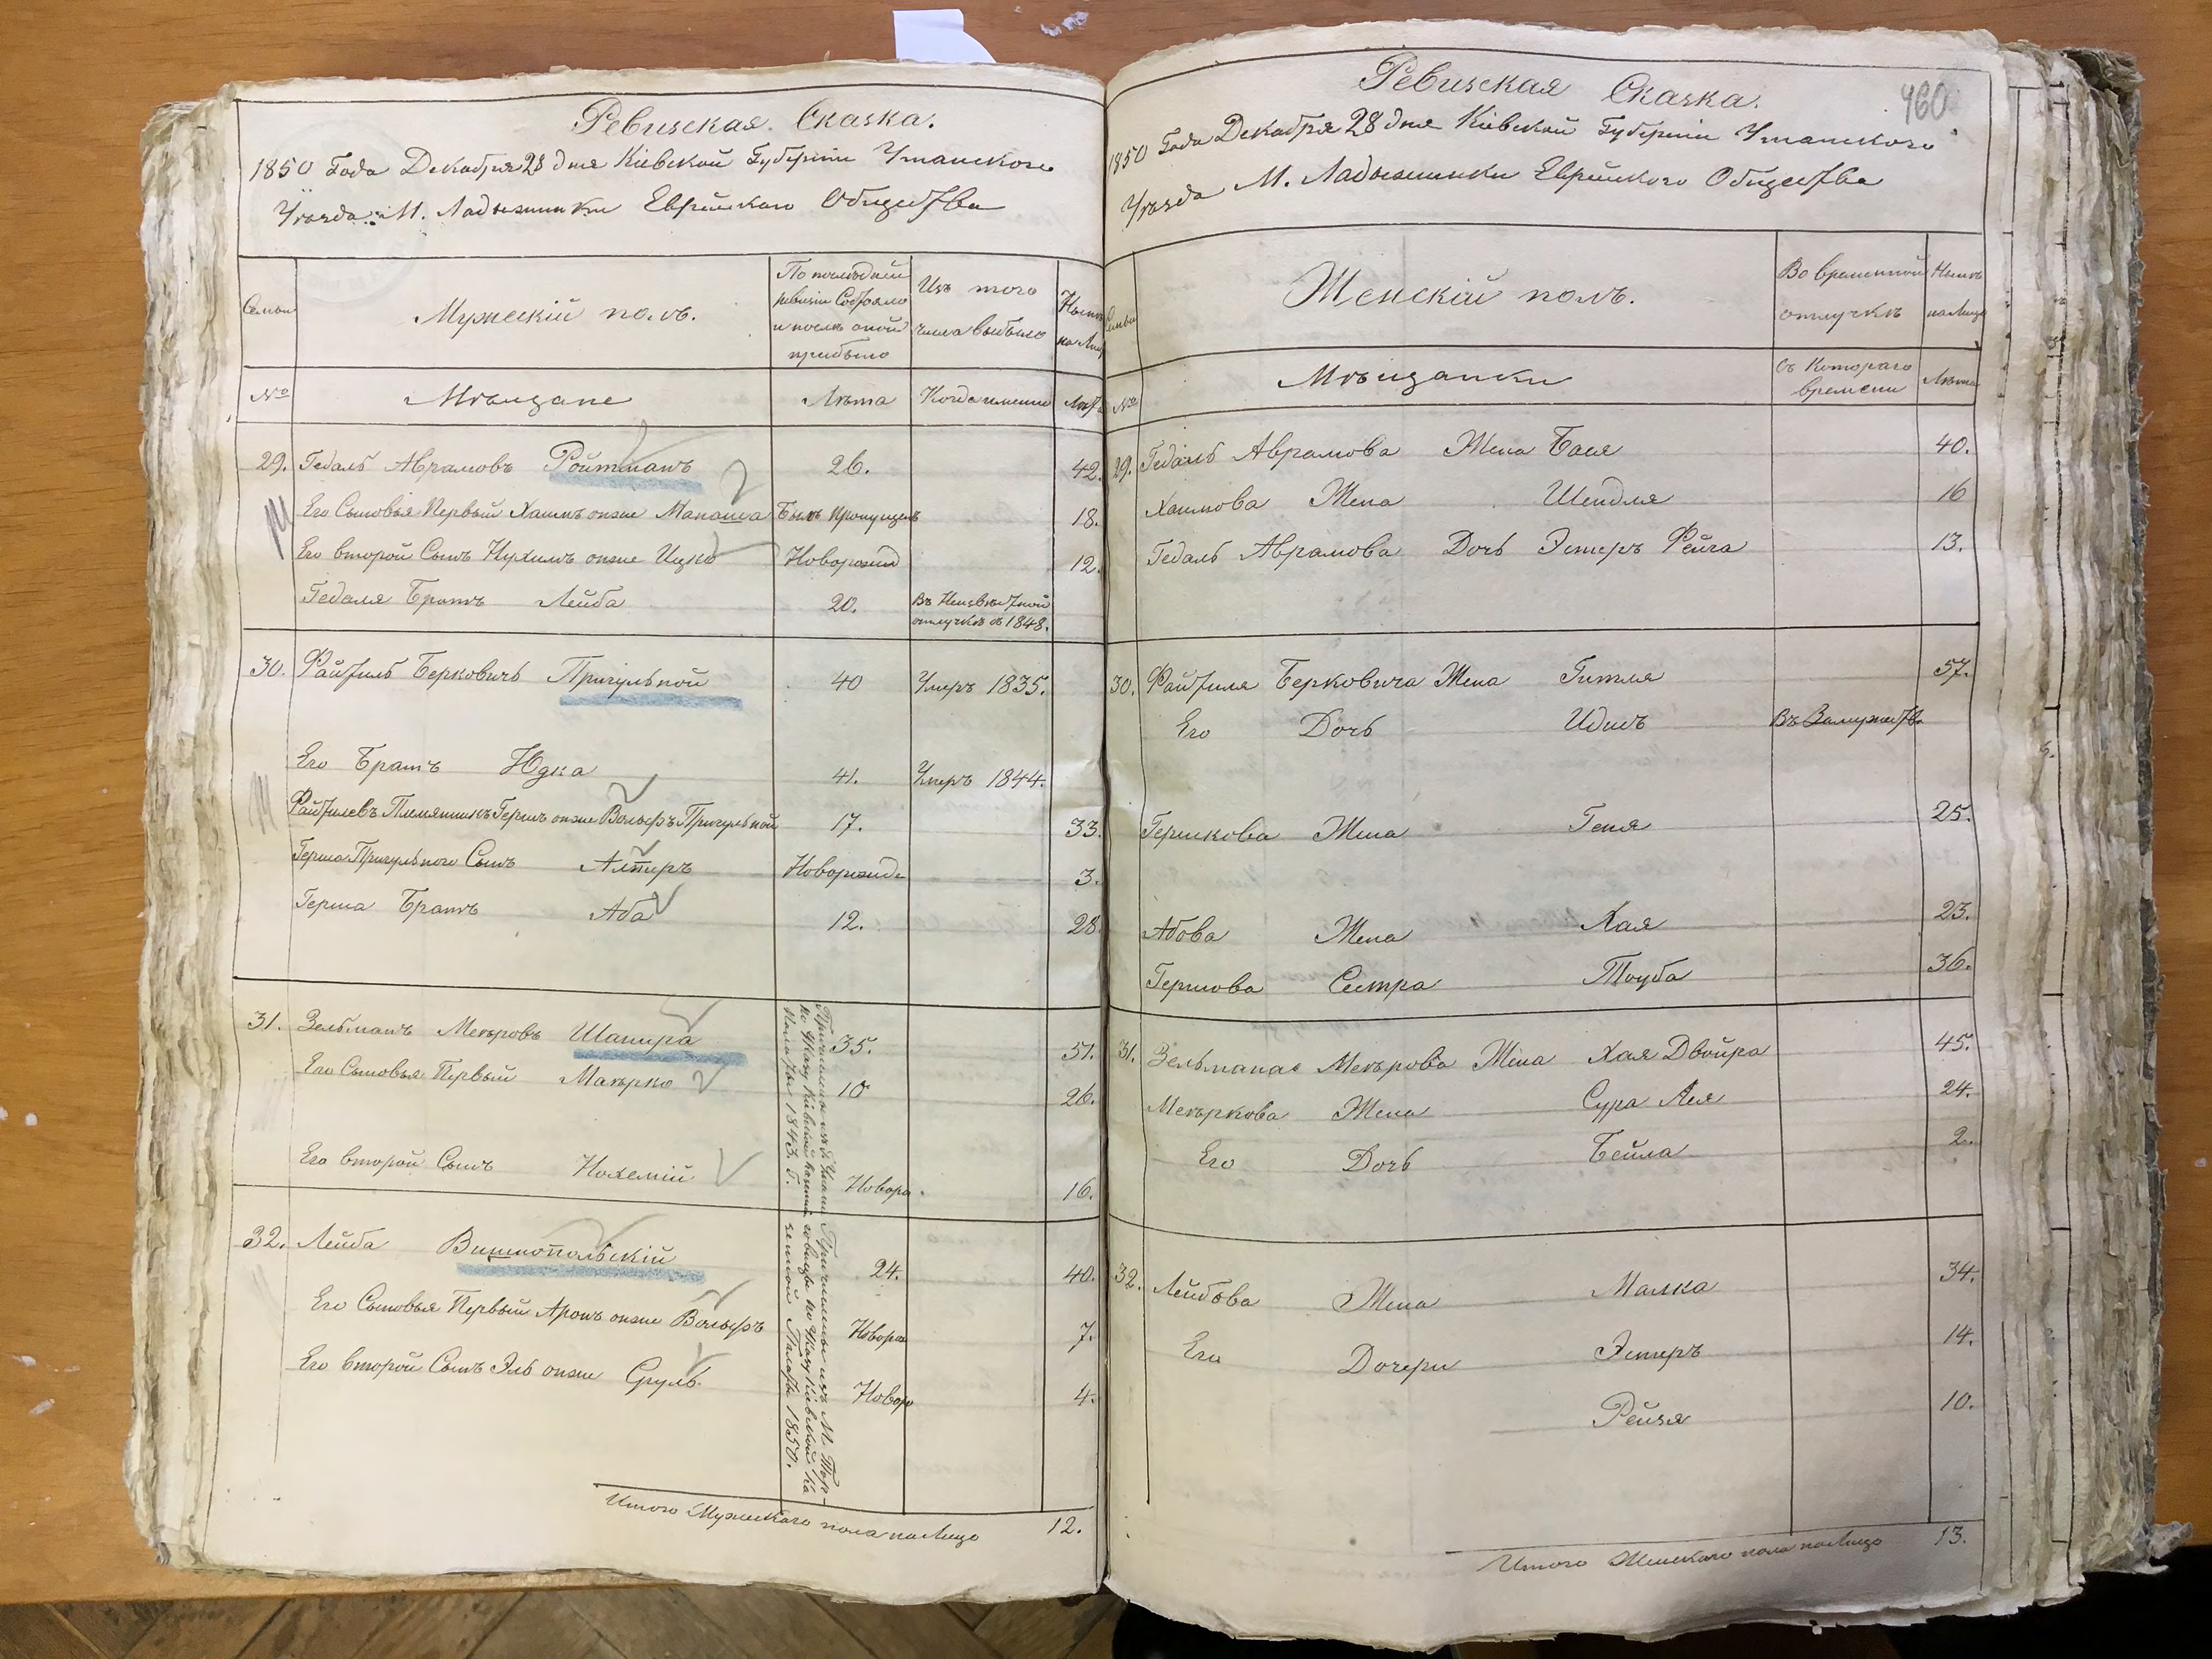 Ревизская Сказка.
1850 Года Декабря 28 дня Кіевской Губерніи Уманского
Уѣзда М. Ладыжинки Еврейского Общества
Семьи
Мужескій полъ.
По послѣдней ревизіи Состояло и послѣ оной прибыло
Изъ того числа выбыло
Нынѣ на Лицо
№
Мѣщане
Лѣта
Когда именно
Лѣта
29. Гедаль Аврамовъ Ройтманъ 26. 42.
Его Сыновья Первый Хаимъ онже Манаша Былъ пропущенъ 18.
Его второй Сынъ Нухимъ онже Ицко Новорожд 12.
Гедаля Братъ Лейба 20. Въ Неизвѣстной
отлучкѣ съ 1848.
30. Файтель Берковичъ Пригульной 40 Умеръ 1835.
Его Братъ Юдка 41. Умеръ 1844.
Файтелевъ Племянникъ Гершъ онже Вольфъ Пригульной 17. 33.
Герша Пригульного Сынъ Алтеръ Новорожд 3.
Герша Братъ Аба 12. 28
31. Зельманъ Меѣровъ Шапира 35. 51.
Его Сыновья Первый Маѣрко 10 26.
Его второй Сынъ Нохемій Новоро 16.
Причислены изъ Умани
по Указу Кіевской Казенной
Палаты 1843 Г.
32. Лейба Вишнопольскій 24. 40.
Его Сыновья Первый Аронъ онже Вольфъ Новоро 7.
Его второй Сынъ Эль онже Сруль Новоро 4.
Причислены изъ М. Тор-
говицы по Указу Кіевской Ка
зенной Палаты 1850.
Итого Мужескаго пола на Лицо 12.
460
Ревизская Сказка.
1850 Года Декабря 28 дня Кіевской Губерніи Уманского
Уѣзда М. Ладыжинки Еврейского Общества
Семьи
Женскій полъ.
Во временной отлучкѣ
Нынѣ на Лицо
№
Мѣщанки
Съ Котораго времени
Лѣта
29. Гедаль Аврамова Жена Бася 40.
Хаимова Жена Шейдля 16
Гедаль Аврамова Дочь Эстеръ Рейза 13.
30. Файтеля Берковича Жена Гитля 57.
Его Дочь Идисъ Въ Замужествѣ
Гершкова Жена Геня 25.
Абова Жена Хая 23.
Гершова Сестра Тоуба 36.
31. Зельмана Меѣрова Жена Хая Двойра 45.
Меѣркова Жена Сура Лея 24.
Его Дочь Бейла 2.
32. Лейбова Жена Малка 34.
Его Дочери Эстеръ 14.
Рейзя 10.
Итого Женскаго пола на Лицо 13.